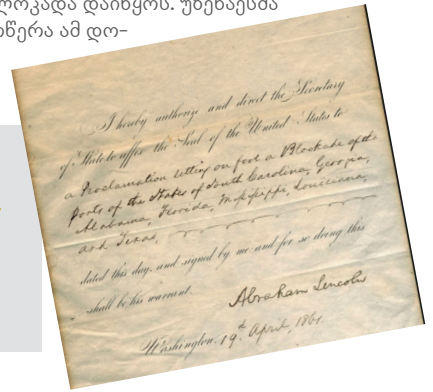 ლოკადა დაიწყოს. უზენაესმა
ოწერა ამ დო-
I hereby authorize and direct the Secretary
of State to affix the Seal of the United States to
a Proclamation setting on foot a Blockade of the
ports of the States of South Carolina, Georgia,
Alabama, Florida, Mississippi, Louisiana,
and Texas,
dated this day, and signed by me and for so doing this
shall be his warrant.
Abraham Lincoln
Washington, 19th April, 1861